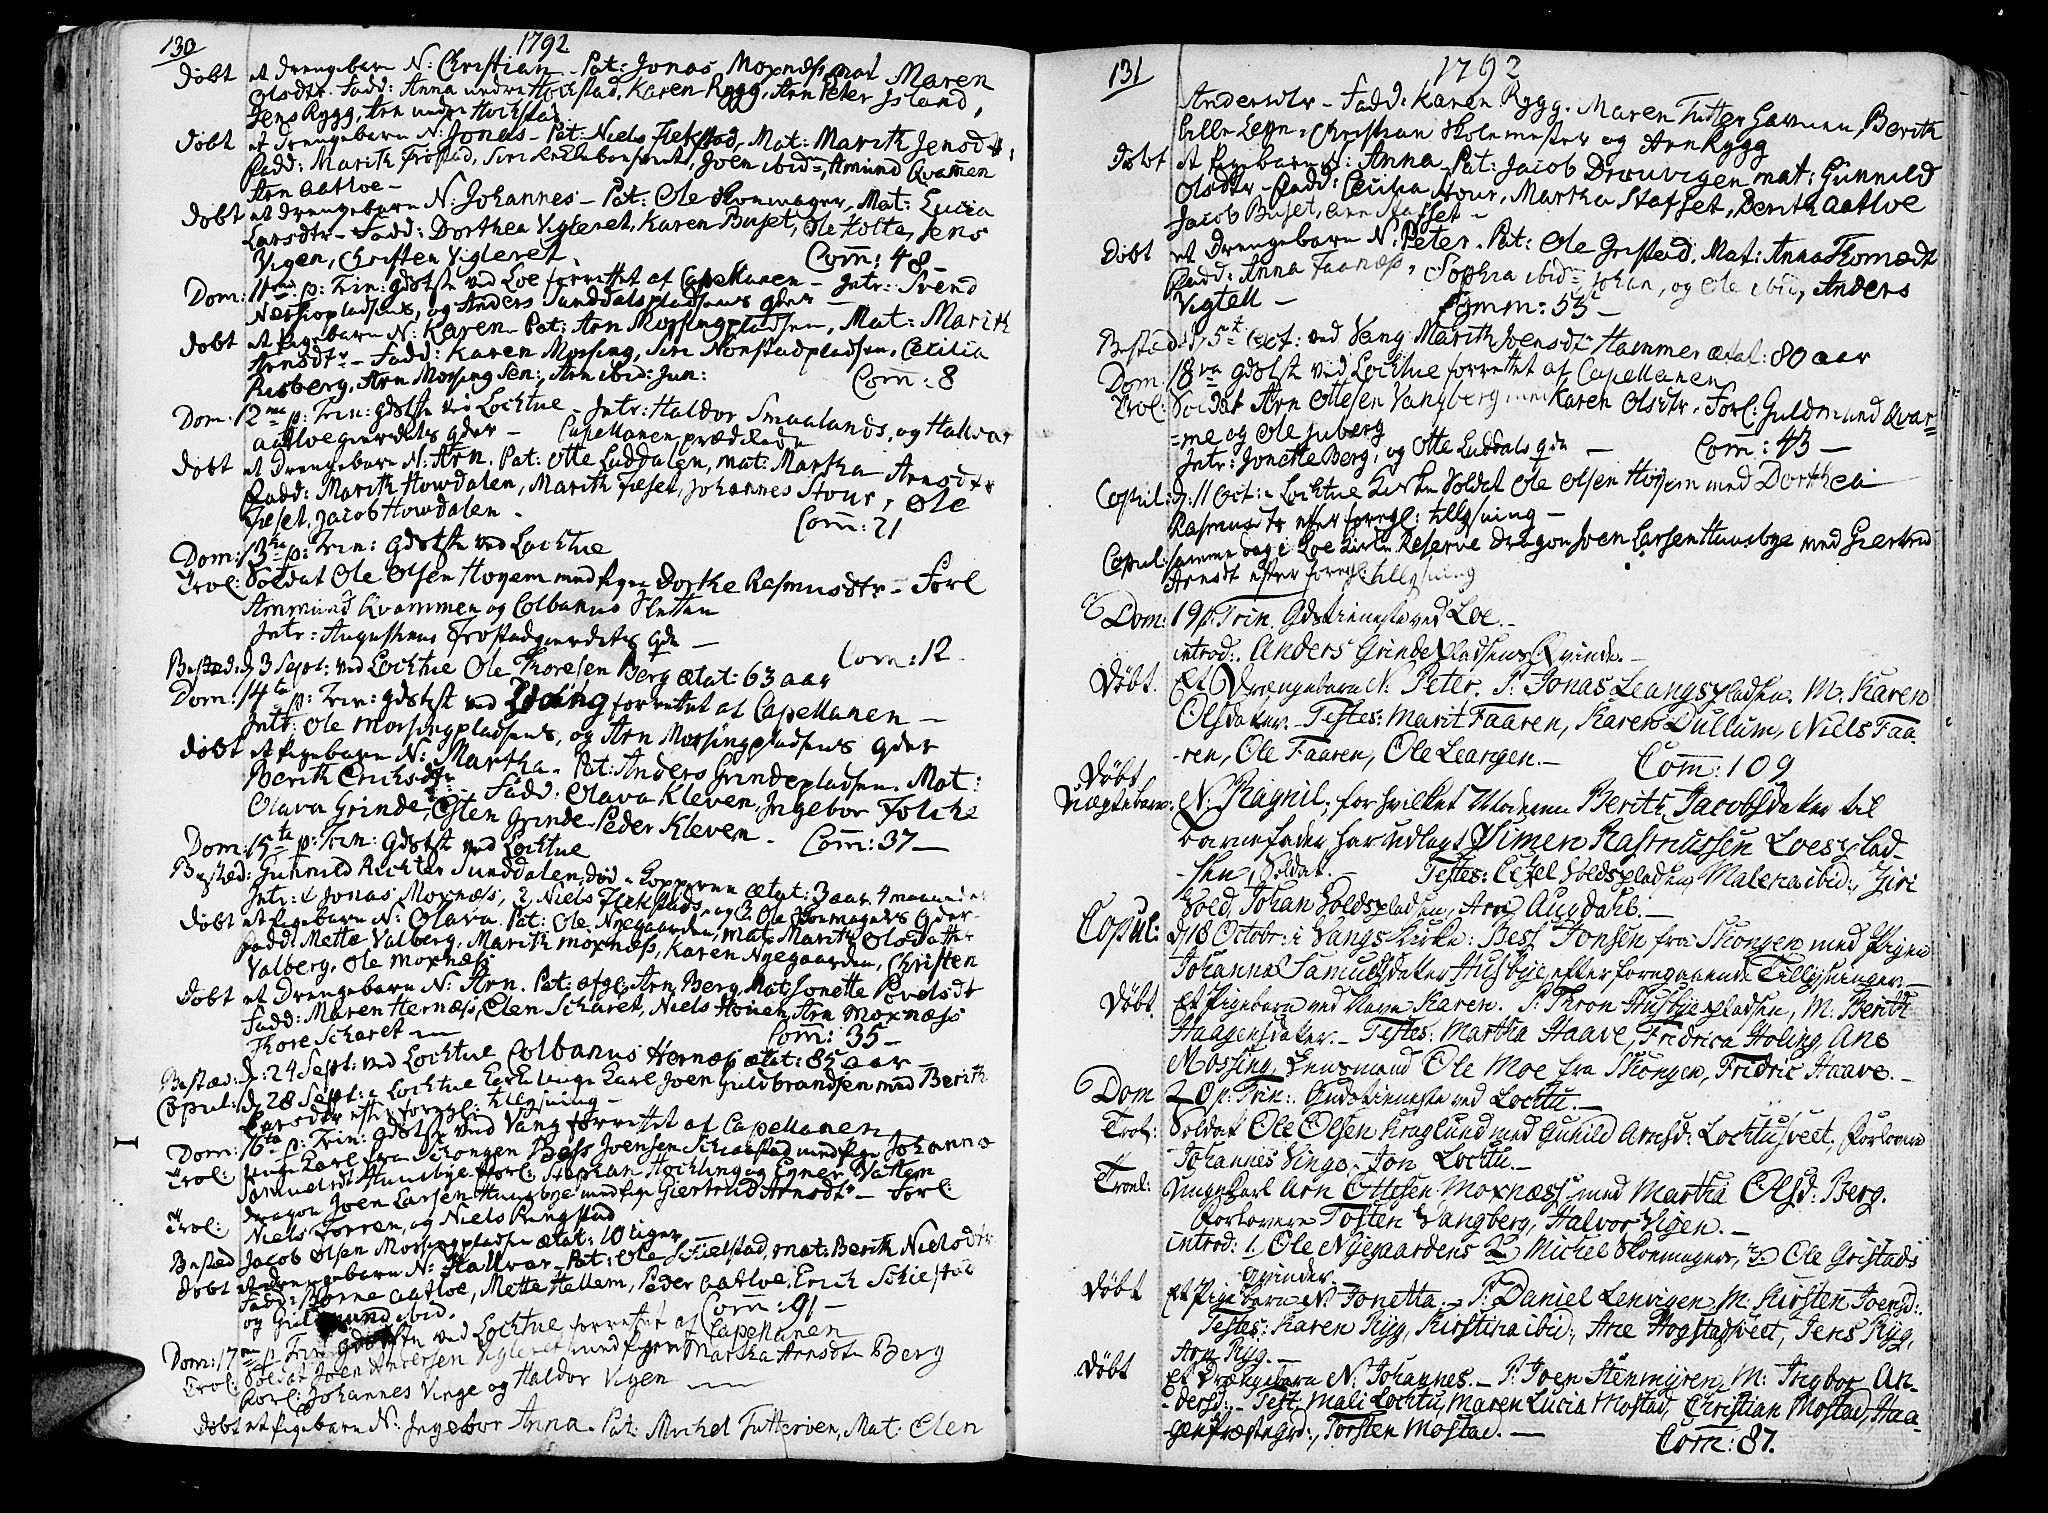 130
1792
Døbt et drengebarn N: Christian - Pat: Jonas Moxnæss, mat Maren
Olsdtr. Fadd: Anna nedre Hockstad, Karen Rygg, Arn Peter Island,
Jens Rygg, Arn nedre Hockstad
Døbt et drengebarn N: Jonas - Pat: Niels Fiekstad, Mat: Marith Jensdtr,
Fadd: Marith Frostad, Siri, Joen ibid, Amund Qvamen
Arn Aatloe -
Døbt et drengebarn N: Johannes - Pat: Ole Skomager, Mat: Lucia
Larsdtr - Fadd: Dorthea Vigleret, Karen Buset, Ole Holte, Jens
Vigen, Christen Vigleret. Com: 48 -
Dom: 11me p: Trin: gdstste ved Loe forrettet af Capellanen - Intr: Svend
Nessiopladsens, og Anders Sunddalspladsens qder -
Døbt et pigebarn N: Karen - Pat: Arn Mossingpladsen, Mat: Marith
Arnsdtr - Fadd: Karen Mossing, Siri Nonstadpladsen, Cecilia
Risberg, Arn Mossing Sen:, Arn ibid: Jun: Com: 8
Dom: 12me p: Trin: gdstste ved Lochtue - Intr: Haldor Smaalands, og Halvor
Aatloegierdets qder - Capellanen prædikede
Døbt et drengebarn N: Arn. Pat: Otte Luddalen, mat: Martha Arnsdtr
Fadd: Marith Howdalen, Marith Fieset, Johannes Stour, Ole
Fieset, Jacob Howdalen - Com: 21
Dom: 13de p: Trin: gdstste ved Lochtue
Trol: Soldat Ole Olsen Høyem med pigen Dorthe Rasmusdtr - Forl
Ammund Kvammen og Colbanus Slettan
Intr: Augustinus Frostadgierdets qde -
Bested: d 3 Sept: ved Lochtue Ole Thoresen Berg ætat: 63 aar Com: 12
Dom: 14ta p: Trin: gdstst ved Vang forrettet af Capellanen -
Intr: Ole Mossingpladsens, og Arn Mossingpladsens qder
Døbt et pigebarn N: Martha - Pat: Anders Grindepladsen. Mat:
Berith Ericksdtr. Fadd: Olava Kleven, Ingebor Folche
Olava Grinde, Esten Grinde - Peder Kleven - Com: 37 -
Dom: 15te p: Trin: gdstst ved Lochtue
Bested: Gunnild Sunddalen, død i Kopperne ætat: 3 aar 4 maaneder
Intr: 1 Jonas Moxnæss, 2, Niels Fiekstads, og 3 Ole Skomagers qder -
Døbt et pigebarn N: Olava. Pat: Ole Nyegaarden, mat: Marith Olsdatter
Fadd: Mette Valberg, Marith Moxnæss, Karen Nyegaarden, Christen
Valberg, Ole Moxnæss
Døbt et drengebarn N: Arn. Pat: afg: Arn Berg Mat: Jonette Povelsdt
Fadd: Maren Hernæss, Elen Scharet, Niels Hoven, Arn Moxnæss
Thore Scharet - Com: 35 -
Bestæd: d: 24 Sept: ved Lochtue Colbanus Hernæss ætat: 85 aar
Copul: d 28 Sept: i Lochtue Kirke unge Karl Joen Guldbrandsen med Berith
Larsdtr efter foregl: tillysning -
Dom: 16ta p: Trin: gdstst ved Vang forrettet af Capellanen
Trol: unge Karl fra Skongen Bess Joensen med pige Johanna
Samuelsdtr Huusbye Forl: Stephan Hochling og Egner Vattem
Trol: dragon Joen Larsen Huusbye med pige Giertrud Arnsdtr - Forl:
Niels Forren, og Niels Ringstad
Bested Jacob Olsen Mossingpladsen ætat: 10 uger
Døbt et drengebarn N: Hallvor - Pat: Ole Fielstad, mat: Berith Nielsdtr
Fadd: Aatloe, Mette Hellem, Peder Aatloe, Erich Schiestad
og Gulmund ibid. Com: 91 -
Dom: 17me p Trin gdstste ved Lochtue forrettet af Capellanen
Trol: Soldat Joen Andersen Vigleret med pigen Martha Arnsdtr Berg
Forl: Johannes Vinge og Haldor Vigen -
Døbt et pigebarn N: Ingebor Anna - Pat: Michel Tutterøen, Mat: Elen
131
1792
Andersdtr - Fadd: Karen Rygg. Maren Tutter Havnen, Berith
Lille Leyn, Christian Skolemester og Arn Rygg
Døbt et pigebarn N: Anna - Pat: Jacob Drouvigen mat: Gunnild
Olsdtr - Fadd: Cecilia Stour, Martha Stafset, Berith Aatloe
Jacob Buset, Arn Stafset -
Døbt et drengebarn N: Peter. Pat: Ole Gristad. Mat: Anna Thomædt
Fadd: Anna Faanæss, Sophia ibid, Johan, og Ole ibid, Anders
Vigtell - Comm: 55 -
Bestæd: d 5t Oct: ved Vang Marith Jensdtr Hammer ætat: 80 aar
Dom: 18va gdstst ved Lochtue forrettet af Capellanen
Trol: Soldat Arn Ottesen Vangberg med Karen Olsdtr. Forl: Guldmund Qvar=
=me og Ole Juberg
Intr: Jonette Berg, og Otte Luddals qde - Com: 43 -
Copul: d: 11 Oct: i Lochtue Kirke Soldat Ole Olsen Høyem med Dorthea
Rasmusdtr efter foregl: tillysning -
Copul: samme dag i Loe Kirke Reserve Dragon Joen Larsen Huusbye med Giertrud
Arnsdt efter foregl: tillysning
Dom: 19 p. Trin. Gdstieneste ved Loe. -
introd:. Anders Grindepladsens Qvinde. -
Døbt. Et Drængebarn N. Peter. P. Jonas Leangspladsen. M: Karen
Olsdater. - Testes: Marit Faaren, Karen Dullum, Niels Faa-
-ren, Ole Faaren, Ole Leangen. - Com: 109
Døbt
Uægtebarn: N. Ragnil, for hvilket Moderen Berith Jacobsdater til
barnefader har udlagt Simen Rasmussen Loesplad-
-sen, Soldat. - Testes: Cezel Voldspladsen, Malena ibid:, Giri
Vold, Johan Voldspladsen, Arn Augdahl. -
Copul: d. 18 Octobr: i Vangs Kirke: Bess Jonsen fra Skongen med Pigen
Johanna Samuelsdater Husbye, efter foregaaende Tillysninger. -
Døbt Et Pigebarn ved Navn Karen. P: Thron Husbyepladsen, M: Berith
Haagensdater. - Testes: Martha Haave, Fridrica Holing, Ane
Mossing, Lensmand Ole Moe fra Skongen, Fridric Haave. -
Dom 20 p: Trin:. Gudstieneste ved Lochtu. -
Trol: Soldat Ole Olsen Kraglund med Gunild Arnsd: Lochtusveet, Forlovere
Johannes Vinge, Jon Lochtu. -
Trol: Ungkarl Arn Ottesen Moxnæss med Martha Olsd: Berg.
Forlovere Tosten Vangberg, Halvor Vigen. -
introd: 1. Ole Nyegaardens 2. Michel Skomagers, 3. Ole Gristads
Qvinder.
Døbt Et Pigebarn N. Jonetta. - P: Daniel Lenvigen, M: Kirsten Joensd:.
Testes: Karen Ryg, Kirstina ibid:, Ane Hogstadsveet, Jens Ryg,
Arn Ryg. -
Døbt Et Drængebarn N. Johannes. - P: Joen Stenmyren, M: Ingbor An-
-dersd:. - Test. Mali Lochtu, Maren Lucia Mostad, Christian Mostad, Haa-
gen Præstegrd:, Torsten Mostad. - Com: 87.